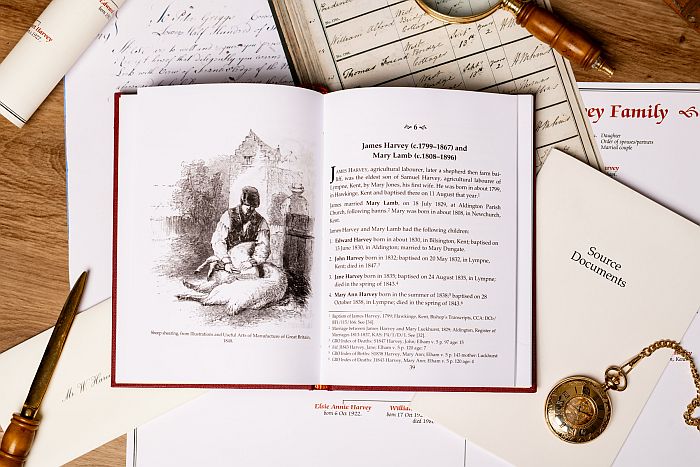 Harvey
Lower Half Hundred of
William Albert
Cottage
Thomas
Cottage
Sept
13th
mar
2
Harvey
ey Family
Daughter
Order of spouses/partners
Married couple
Sheep-shearing, from Illustrations and Useful Arts of Manufacture of Great Britain,
1848.
6
James Harvey (c.1799–1867) and
Mary Lamb (c.1808–1896)
JAMES HARVEY, agricultural labourer, later a shepherd then farm bai-
liff, was the eldest son of Samuel Harvey, agricultural labourer of
Lympne, Kent, by Mary Jones, his first wife. He was born in about 1799,
in Hawkinge, Kent and baptised there on 11 August that year.¹
James married Mary Lamb, on 18 July 1829, at Aldington Parish
Church, following banns.² Mary was born in about 1808, in Newchurch,
Kent.
James Harvey and Mary Lamb had the following children:
1. Edward Harvey born in about 1830, in Bilsington, Kent; baptised on
13 June 1830, in Aldington; married to Mary Dungate.
2. John Harvey born in 1832; baptised on 20 May 1832, in Lympne,
Kent; died in 1847.³
3. Jane Harvey born in 1835; baptised on 24 August 1835, in Lympne;
died in the spring of 1843.⁴
4. Mary Ann Harvey born in the summer of 1838;⁵ baptised on 28
October 1838, in Lympne; died in the spring of 1843.⁶
¹ Baptism of James Harvey, 1799; Hawkinge, Kent, Bishop's Transcripts, CCA: DCb/
² Marriage between James Harvey and Mary Luckhurst, 1829; Aldington, Register of
Marriages 1813-1837, KAS:
³ GRO Index of Deaths: S1847 Harvey, John; Elham v.5 p. 97 age 15
⁴ Harvey, Jane; Elham v.5 p. 120 age: 7
⁵ GRO Index of Births: S1838 Harvey, Mary Ann; Elham v.5 p. 143 mother: Luckhurst
⁶ GRO Index of Deaths: J1843 Harvey, Mary Ann; Elham v.5 p. 120 age: 4
39
Source
Documents
Mr W Har
Elsie Annie Harvey
born 6 Oct 1922.
William
born 17 Oct
died